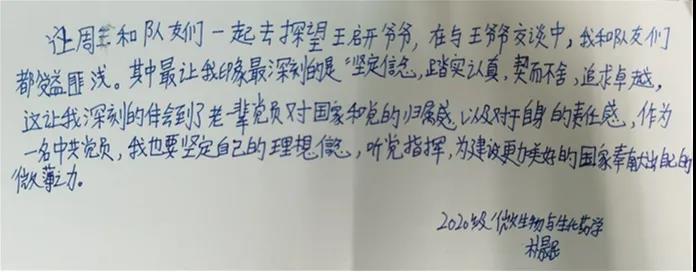 让周三和队友们一起去探望王启开爷爷，在与王爷爷交谈中，我和队友们
都受益匪浅。其中最让我印象最深刻的是"坚定信念，踏实认真，契而不舍，追求卓越，
这让我深刻的体会到了老一辈党员对国家和党的归属感以及对于自身的责任感，作为
一名中共党员，我也要坚定自己的理想信念，听党指挥，为建设更加美好的国家奉献出自己的
微薄之力。
2020级微生物与生化药学
林